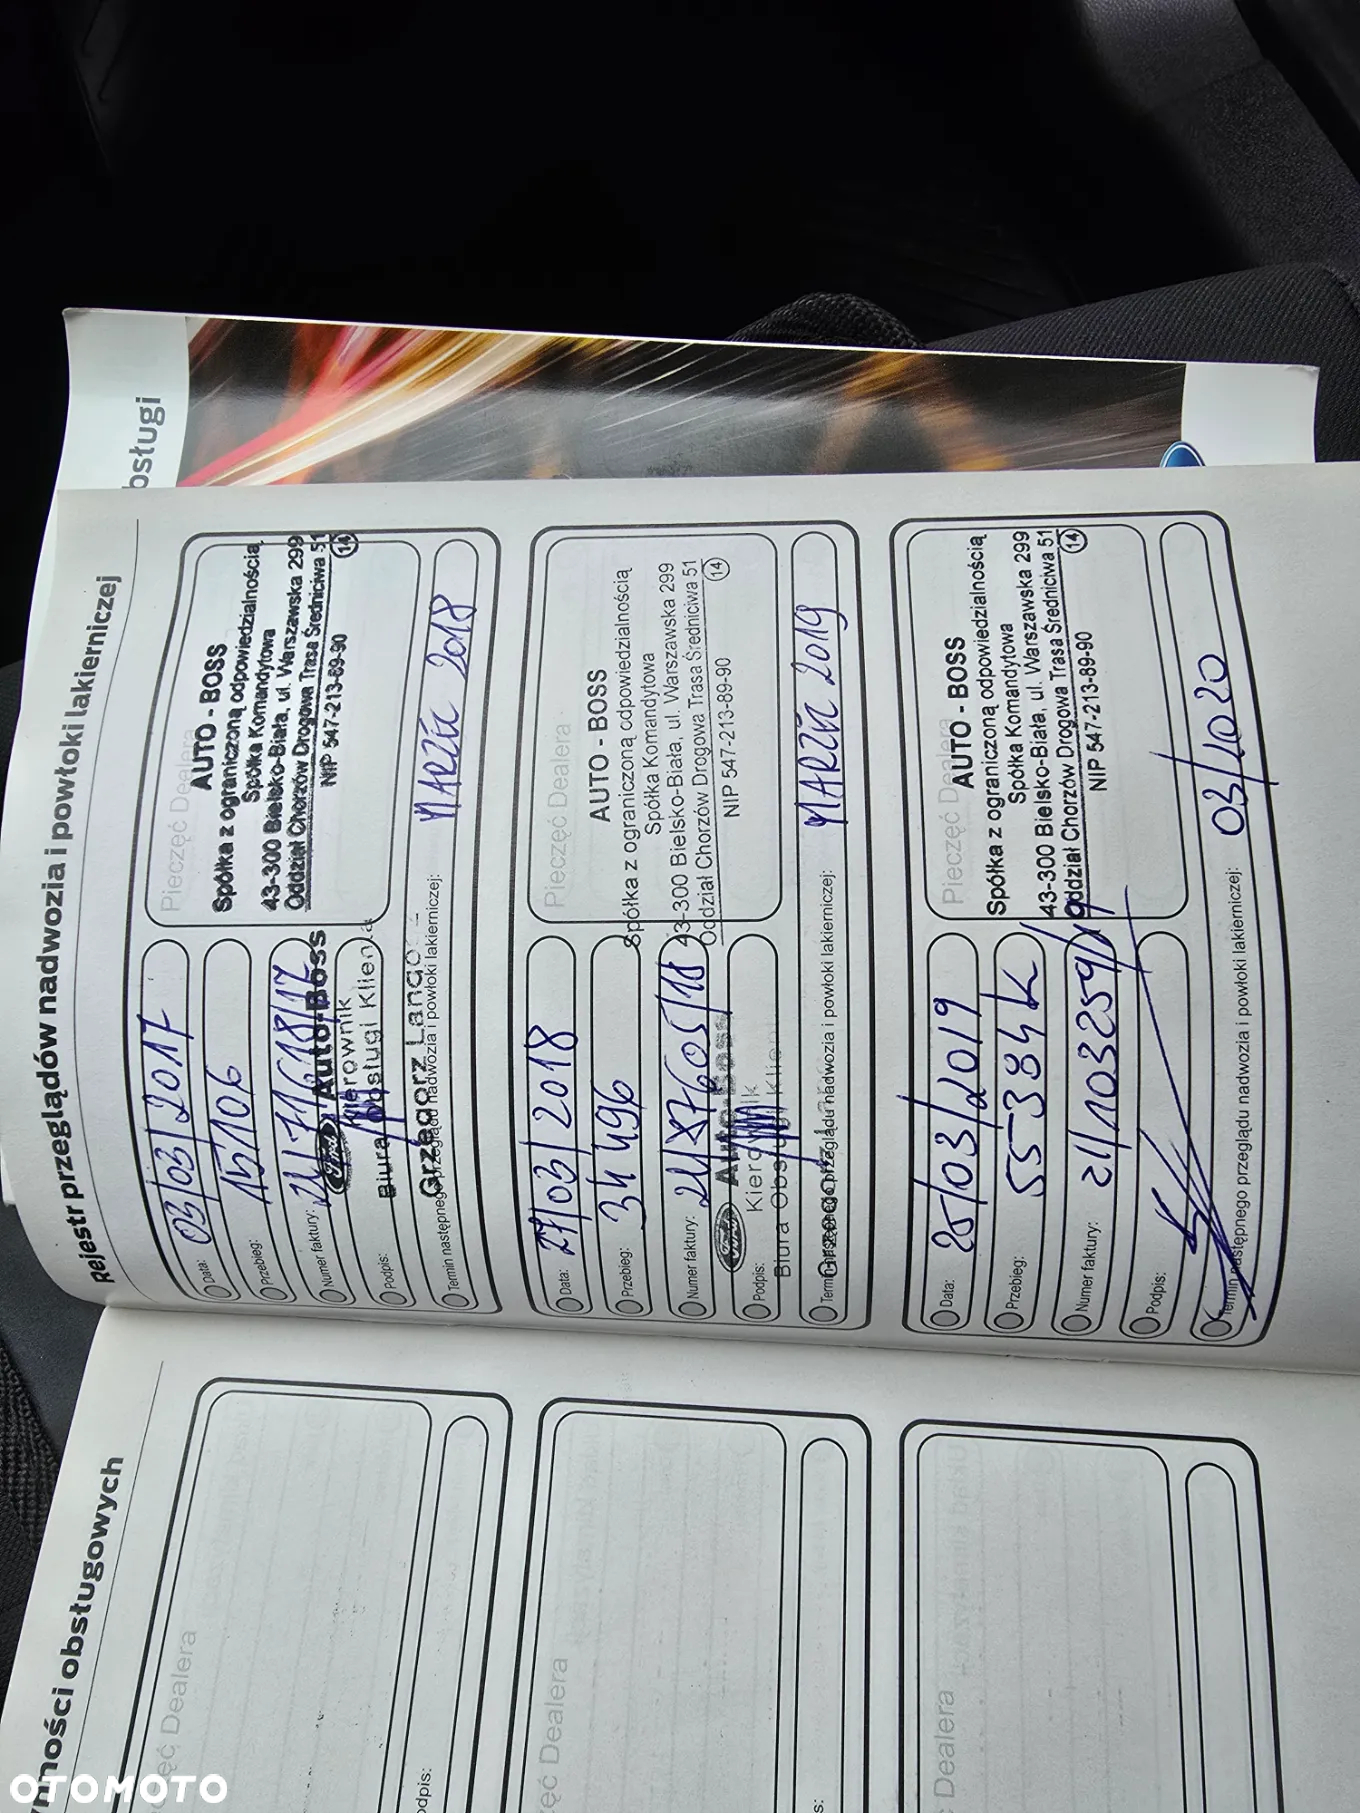 bsługi
Rejestr przeglądów nadwozia i powłoki lakierniczej
Data: 03/03/2017
Przebieg: 15106
Numer faktury:
Podpis:
Auto-Boss
Kierownik
Biura Obsługi Klienta
Grzegorz
Termin następnego przeglądu nadwozia i powłoki lakierniczej: MARZEC 2018
Pieczęć Dealera
AUTO - BOSS
Spółka z ograniczoną odpowiedzialnością
Spółka Komandytowa
43-300 Bielsko-Biała, ul. Warszawska 299
Oddział Chorzów Drogowa Trasa Średnicowa 51
NIP 547-213-89-90
14
Data: 27/03/2018
Przebieg: 34496
Numer faktury:
Podpis:
Ford Auto-Boss
Kierownik
Biura Obsługi Klienta
Grzegorz
Termin następnego przeglądu nadwozia i powłoki lakierniczej: MARZEC 2019
Pieczęć Dealera
AUTO - BOSS
Spółka z ograniczoną odpowiedzialnością
Spółka Komandytowa
43-300 Bielsko-Biała, ul. Warszawska 299
Oddział Chorzów Drogowa Trasa Średniciwa 51
NIP 547-213-89-90
14
Data: 25/03/2019
Przebieg: 55384 k
Numer faktury:
Podpis:
Termin następnego przeglądu nadwozia i powłoki lakierniczej: 03/2020
Pieczęć Dealera
AUTO - BOSS
Spółka z ograniczoną odpowiedzialnością
Spółka Komandytowa
43-300 Bielsko-Biała, ul. Warszawska 299
Oddział Chorzów Drogowa Trasa Średniciwa 51
NIP 547-213-89-90
14
ynności obsługowych
ęć Dealera
odpis:
ęć Dealera
s:
ć Dealera
OTOMOTO